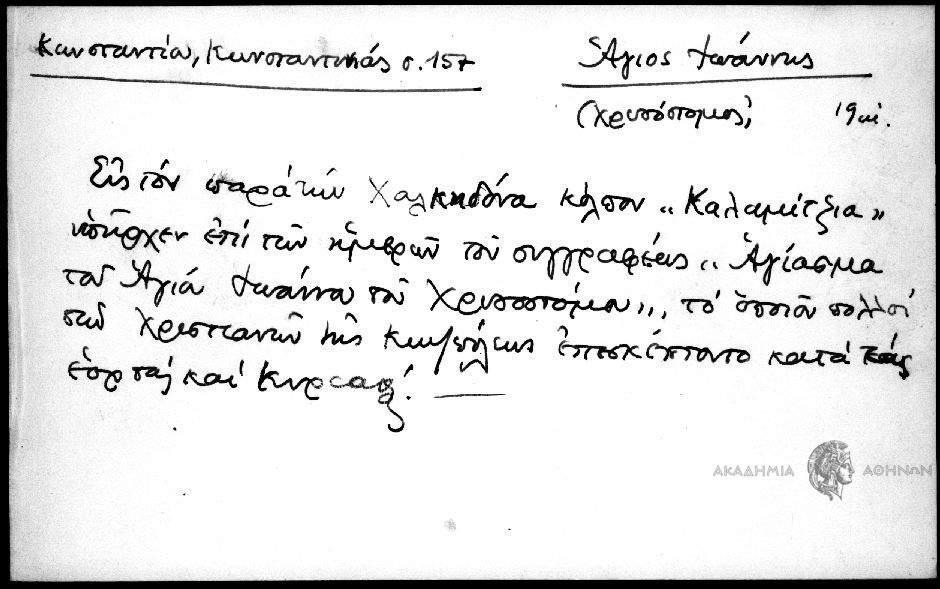 Κωνσταντίου, Κωνσταντινιάς σ. 157
Ἅγιος Ἰωάννης
(Χρυσόστομος) 19 αἰ.
Εἰς τὸν παρὰ τὴν Χαλκηδόνα κόλπον „Καλαμίτζια"
ὑπῆρχεν ἐπὶ τῶν ἡμερῶν τοῦ συγγραφέως „Ἁγίασμα
τοῦ Ἁγίου Ἰωάννου τοῦ Χρυσοστόμου", τὸ ὁποῖον πολλοί
τῶν Χριστιανῶν τῆς Κων/πόλεως ἐπεσκέπτοντο κατὰ τὰς
ἑορτὰς καὶ Κυριακάς.
ΑΚΑΔΗΜΙΑ ΑΘΗΝΩΝ